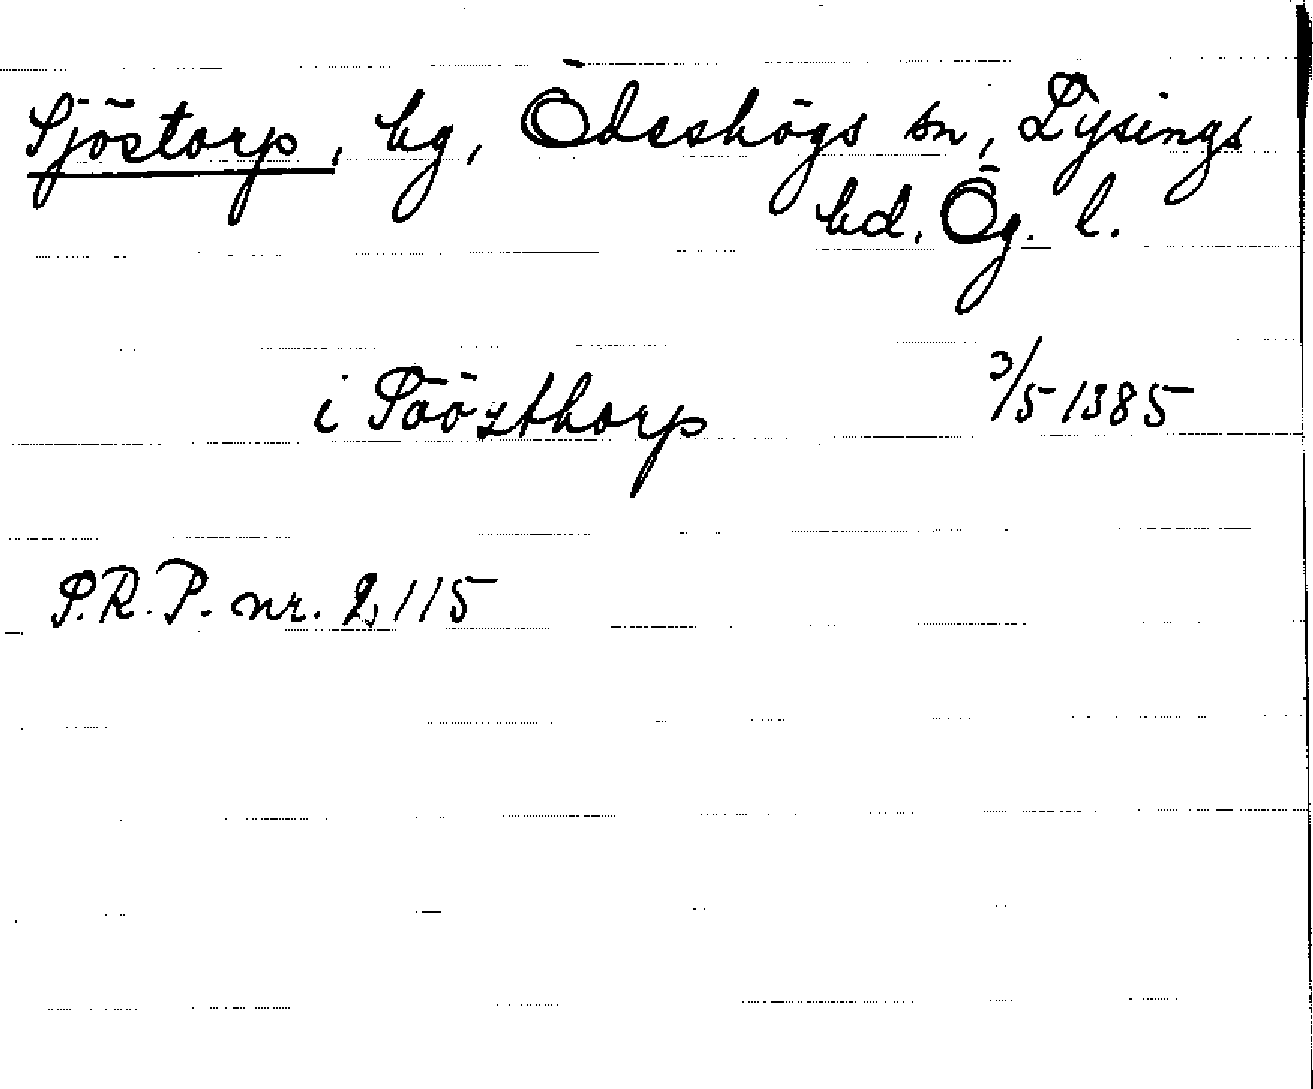 Sjöstorp, by, Ödeshögs sn, Lysings
hd. Ög. l.
i Söösthorp 3/5 1385
S.R.P. nr. 2115